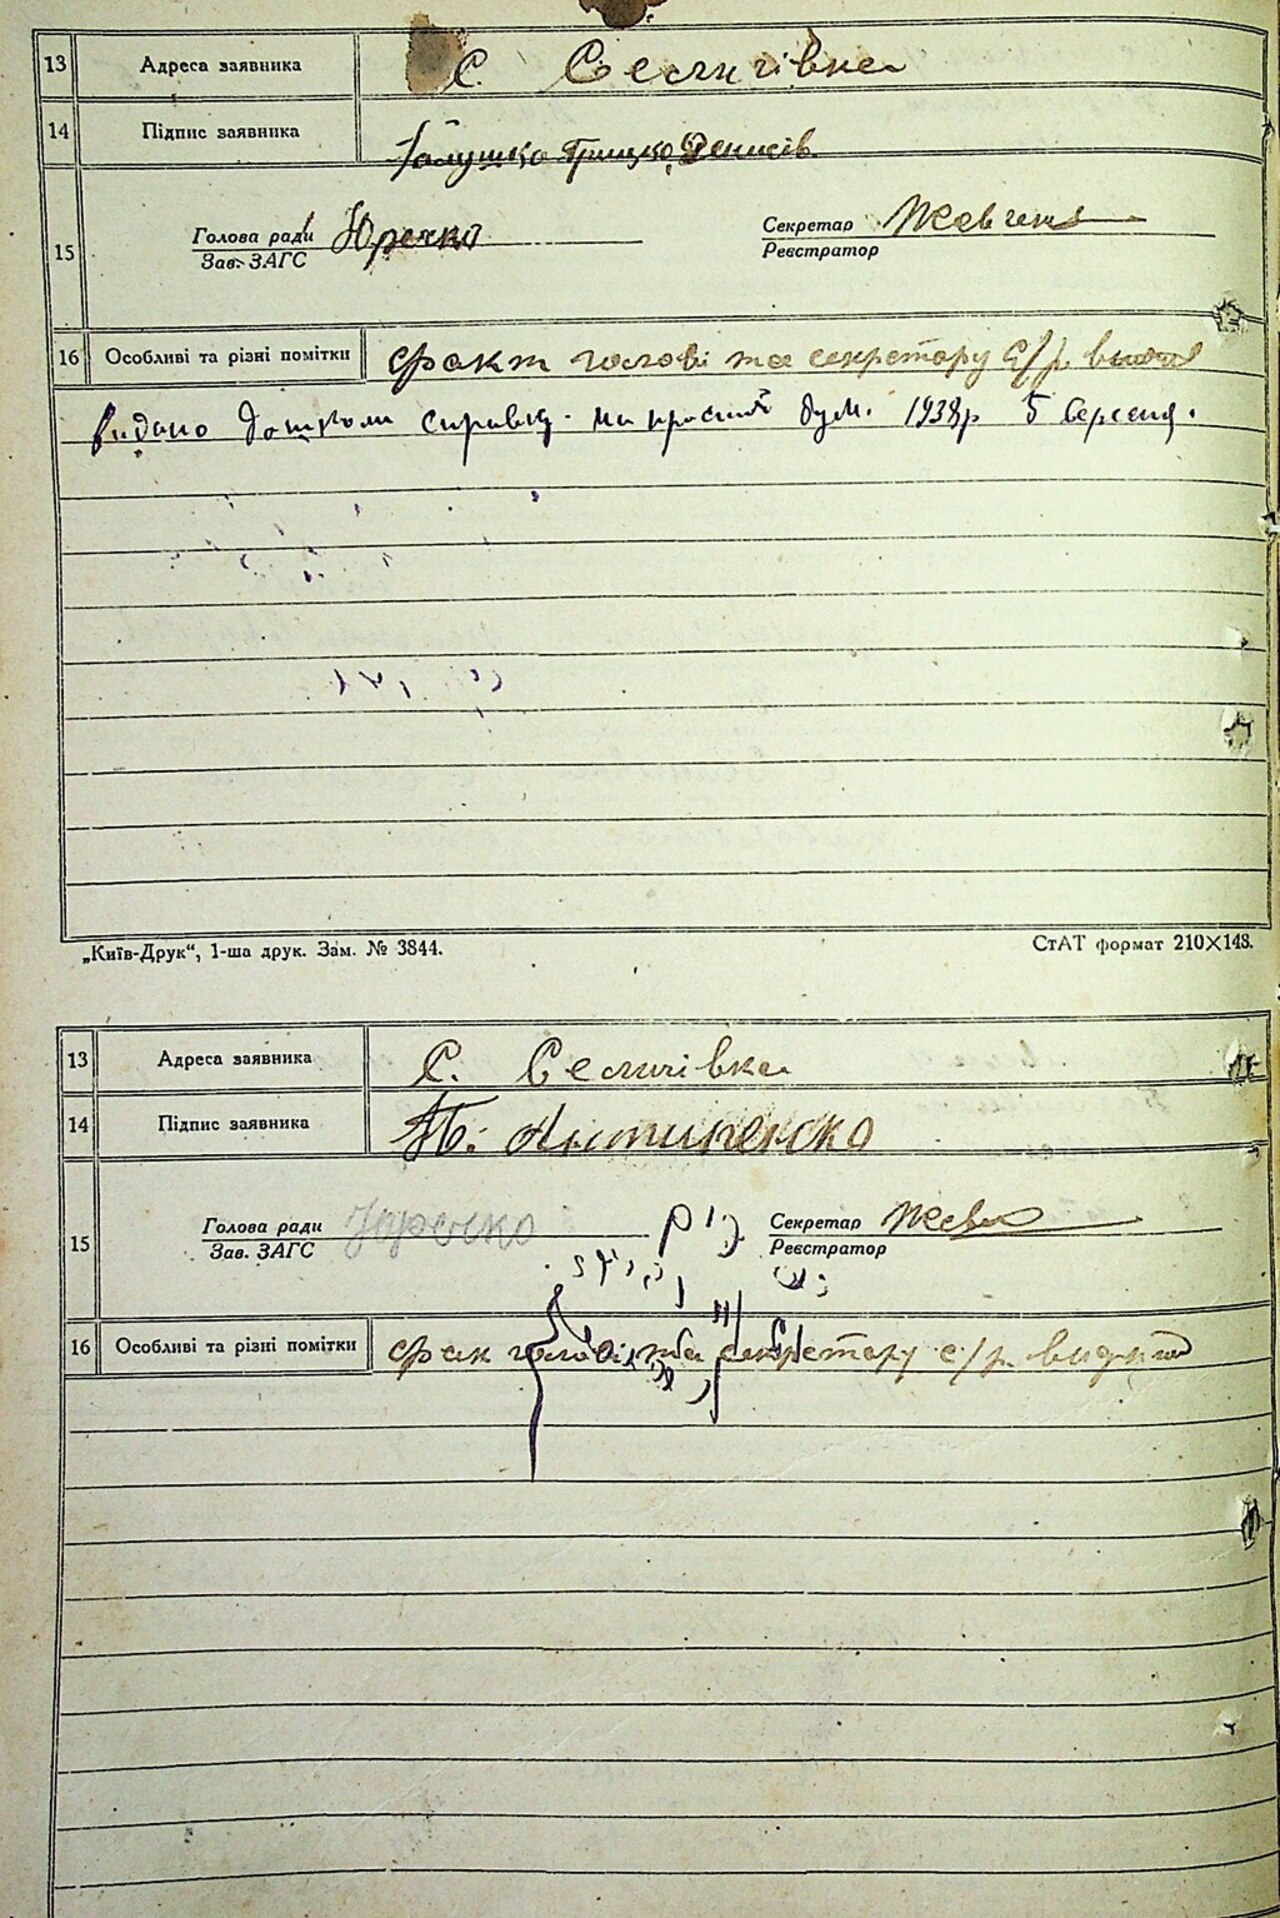 13 Адреса заявника с. Селичівка
14 Підпис заявника Галушко Грицко Денисів
15 Голова ради Юречко Секретар Шевченко
Зав. ЗАГС Реєстратор
16 Особливі та різні помітки факт голові та секретару с/р
видано справку на 1938р 5 березня.
„Київ-Друк“, 1-ша друк. Зам. № 3844. СтАТ формат 210×148.
13 Адреса заявника С. Селичівка
14 Підпис заявника
15 Голова ради Юречко Секретар
Зав. ЗАГС Реєстратор
16 Особливі та різні помітки фак голові та секретару с/р.